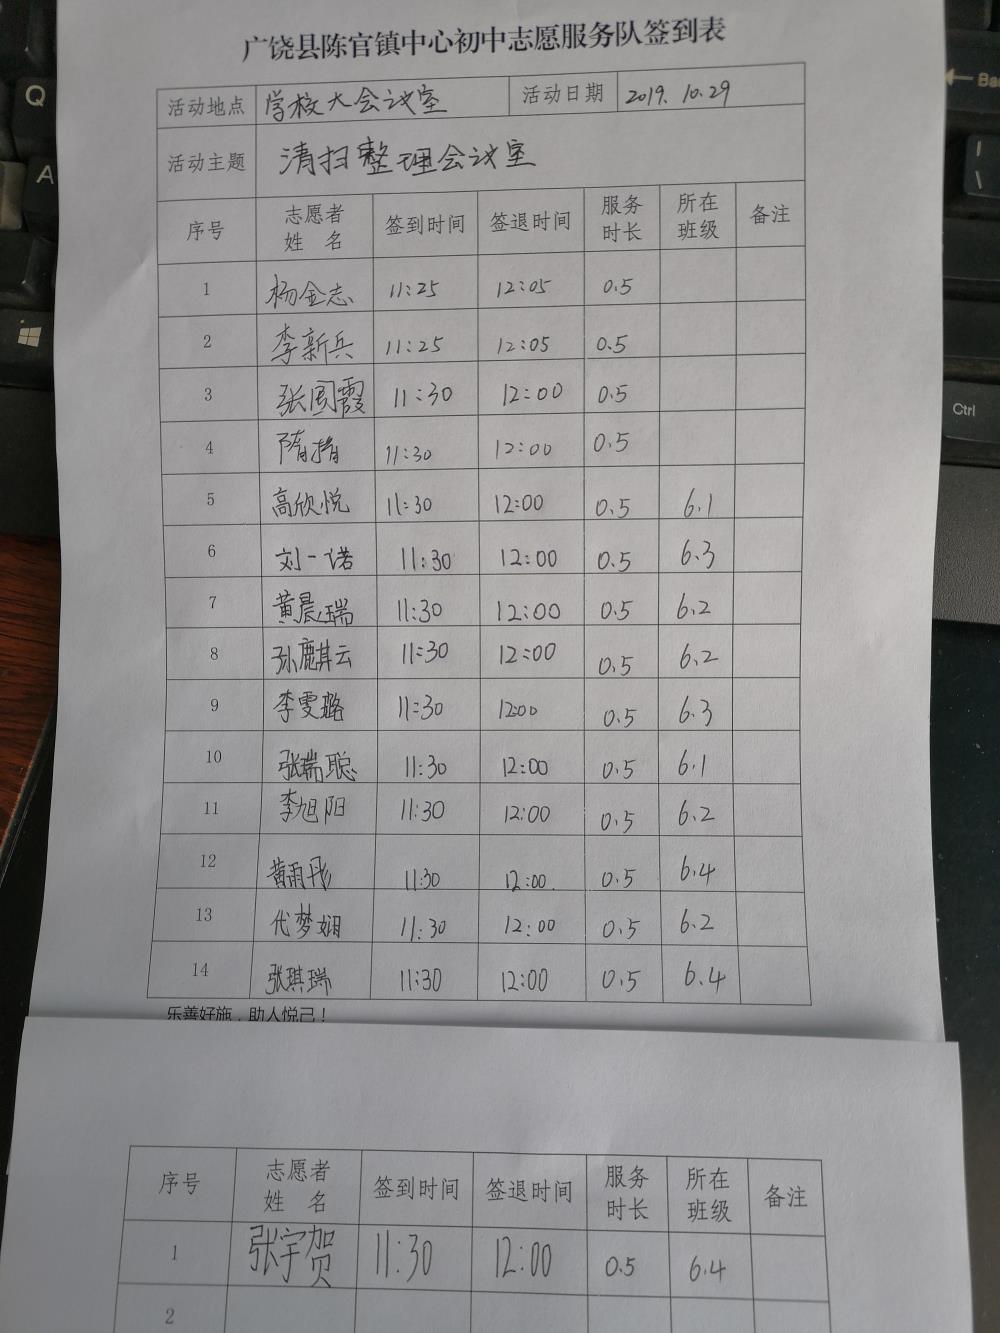 广饶县陈官镇中心初中志愿服务队签到表
活动地点 学校大会议室 活动日期 2019.10.29
活动主题 清扫整理会议室
序号 志愿者姓名 签到时间 签退时间 服务时长 所在班级 备注
1 杨金志 11:25 12:05 0.5
2 李新兵 11:25 12:05 0.5
3 张国霞 11:30 12:00 0.5
4 隋 11:30 12:00 0.5
5 高欣悦 11:30 12:00 0.5 6.1
6 刘一诺 11:30 12:00 0.5 6.3
7 黄晨瑞 11:30 12:00 0.5 6.2
8 孙麒云 11:30 12:00 0.5 6.2
9 李雯璐 11:30 12:00 0.5 6.3
10 张瑞聪 11:30 12:00 0.5 6.1
11 李旭阳 11:30 12:00 0.5 6.2
12 黄雨彤 11:30 12:00 0.5 6.4
13 代梦娟 11:30 12:00 0.5 6.2
14 张琪瑞 11:30 12:00 0.5 6.4
乐善好施，助人悦己！
序号 志愿者姓名 签到时间 签退时间 服务时长 所在班级 备注
1 张宇贺 11:30 12:00 0.5 6.4
2
Q
A
Ctrl